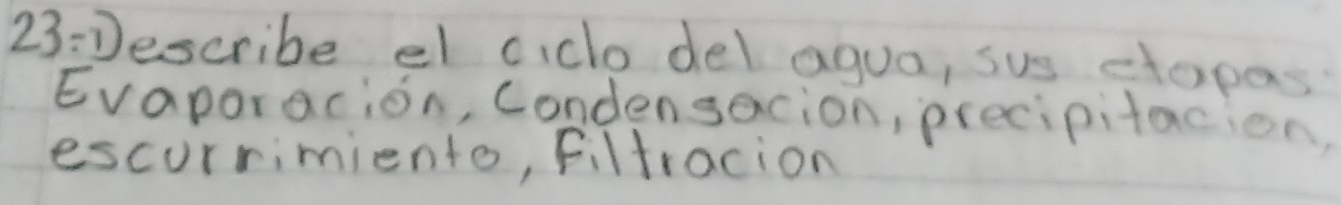 23=Describe el ciclo del agua, sus etapas:
Evaporación, Condensacion, precipitacion,
escurrimiento, Filtracion